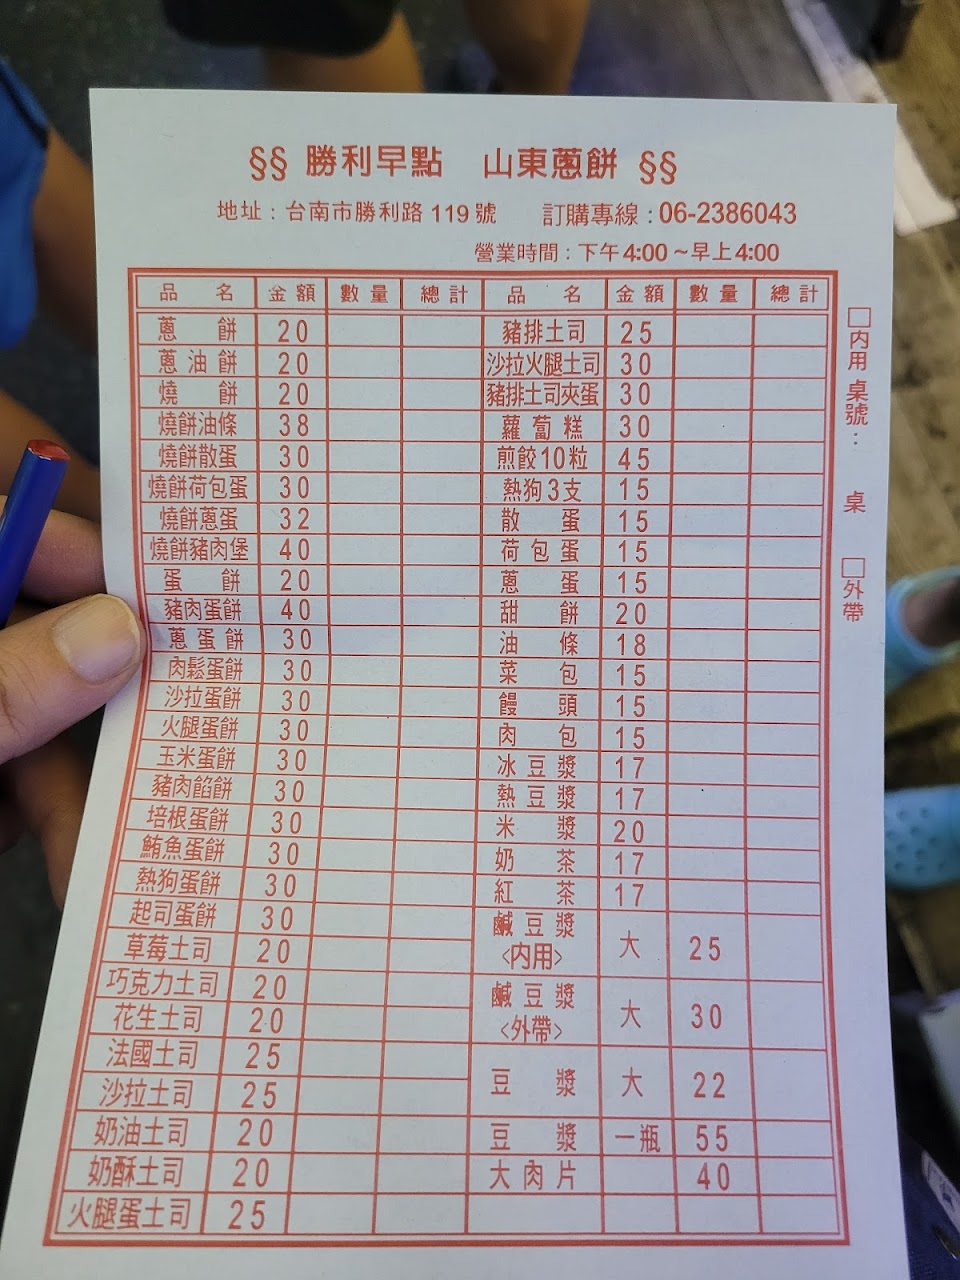 §§ 勝利早點 山東蔥餅 §§
地址：台南市勝利路119號 訂購專線：06-2386043
營業時間：下午4:00～早上4:00
品名 金額 數量 總計 品名 金額 數量 總計
蔥餅 20 豬排土司 25
蔥油餅 20 沙拉火腿土司 30
燒餅 20 豬排土司夾蛋 30
燒餅油條 38 蘿蔔糕 30
燒餅散蛋 30 煎餃10粒 45
燒餅荷包蛋 30 熱狗3支 15
燒餅蔥蛋 32 散蛋 15
燒餅豬肉堡 40 荷包蛋 15
蛋餅 20 蔥蛋 15
豬肉蛋餅 40 甜餅 20
蔥蛋餅 30 油條 18
肉鬆蛋餅 30 菜包 15
沙拉蛋餅 30 饅頭 15
火腿蛋餅 30 肉包 15
玉米蛋餅 30 冰豆漿 17
豬肉餡餅 30 熱豆漿 17
培根蛋餅 30 米漿 20
鮪魚蛋餅 30 奶茶 17
熱狗蛋餅 30 紅茶 17
起司蛋餅 30 鹹豆漿<內用> 大 25
草莓土司 20
巧克力土司 20 鹹豆漿<外帶> 大 30
花生土司 20
法國土司 25 豆漿 大 22
沙拉土司 25
奶油土司 20 豆漿 一瓶 55
奶酥土司 20 大肉片 40
火腿蛋土司 25
□內用 桌號： 桌
□外帶